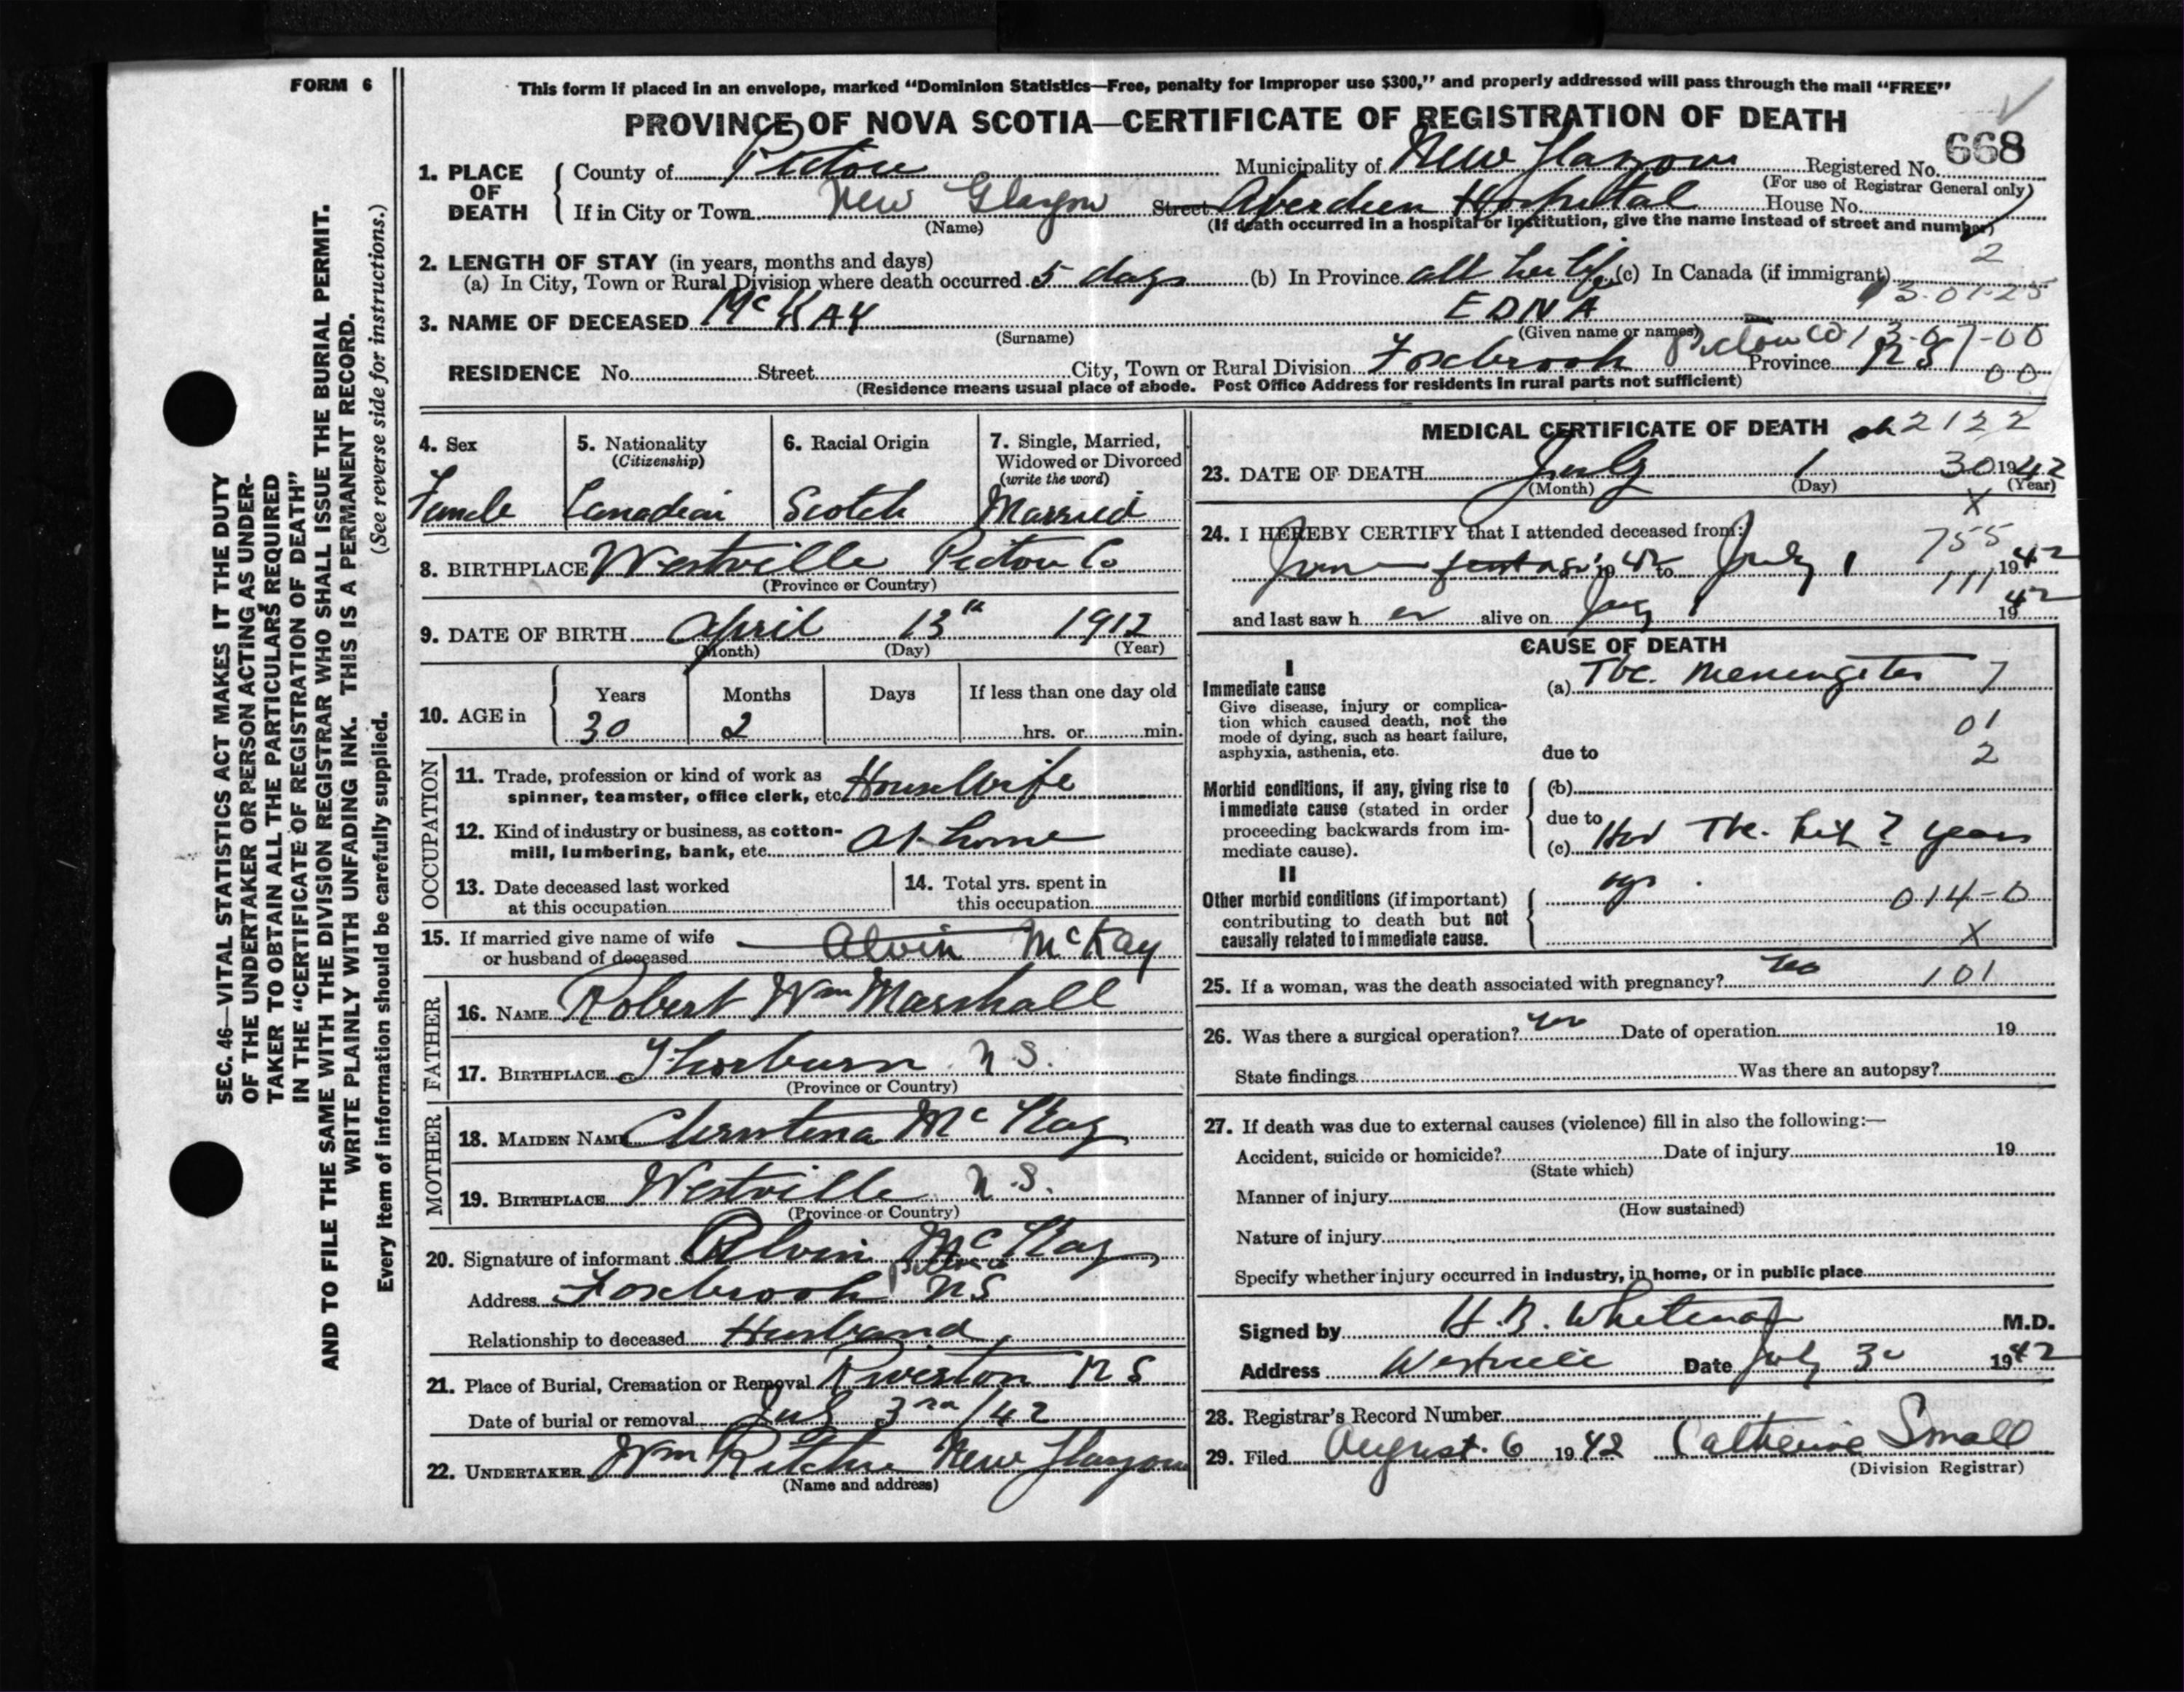 FORM 6
This form if placed in an envelope, marked "Dominion Statistics—Free, penalty for improper use $300," and properly addressed will pass through the mail "FREE"
PROVINCE OF NOVA SCOTIA—CERTIFICATE OF REGISTRATION OF DEATH
668
1. PLACE OF DEATH
County of Pictou Municipality of New Glasgow Registered No.
(For use of Registrar General only)
If in City or Town New Glasgow Street Aberdeen Hospital House No.
(Name) (If death occurred in a hospital or institution, give the name instead of street and number)
2
2. LENGTH OF STAY (in years, months and days)
(a) In City, Town or Rural Division where death occurred 5 days (b) In Province all her life (c) In Canada (if immigrant)
3-01-25
3. NAME OF DECEASED McKAY EDNA
(Surname) (Given name or names)
Pictou Co 13-07-00
RESIDENCE No. Street City, Town or Rural Division Foxbrook Province N S
00
(Residence means usual place of abode. Post Office Address for residents in rural parts not sufficient)
4. Sex 5. Nationality 6. Racial Origin 7. Single, Married,
(Citizenship) Widowed or Divorced
(write the word)
Female Canadian Scotch Married
8. BIRTHPLACE Westville Pictou Co
(Province or Country)
9. DATE OF BIRTH April 13th 1912
(Month) (Day) (Year)
10. AGE in Years Months Days If less than one day old
30 2 hrs. or min.
OCCUPATION
11. Trade, profession or kind of work as
spinner, teamster, office clerk, etc. HouseWife
12. Kind of industry or business, as cotton-
mill, lumbering, bank, etc. At home
13. Date deceased last worked
at this occupation
14. Total yrs. spent in
this occupation
15. If married give name of wife
or husband of deceased Alvin McKay
FATHER
16. NAME Robert Wm Marshall
17. BIRTHPLACE Thorburn N.S.
(Province or Country)
MOTHER
18. MAIDEN NAME Christena McKay
19. BIRTHPLACE Westville N.S.
(Province or Country)
20. Signature of informant Alvin McKay
Address Foxbrook Pictou Co NS
Relationship to deceased Husband
21. Place of Burial, Cremation or Removal Riverton N S
Date of burial or removal July 3rd/42
22. UNDERTAKER Wm Ritchie New Glasgow
(Name and address)
MEDICAL CERTIFICATE OF DEATH 2122
23. DATE OF DEATH July 1 30 1942
(Month) (Day) (Year)
X
24. I HEREBY CERTIFY that I attended deceased from:
755
June 1942 to July 1 1942
111
and last saw her alive on July 1 1942
CAUSE OF DEATH
I
Immediate cause
Give disease, injury or complica-
tion which caused death, not the
mode of dying, such as heart failure,
asphyxia, asthenia, etc.
(a) Tbc. Meningitis 7
01
due to 2
Morbid conditions, if any, giving rise to
immediate cause (stated in order
proceeding backwards from im-
mediate cause).
(b)
due to
(c) Had Tbc. hip 2 years
ago.
II
Other morbid conditions (if important)
contributing to death but not
causally related to immediate cause.
014-0
X
25. If a woman, was the death associated with pregnancy? 101
26. Was there a surgical operation? Date of operation 19
State findings Was there an autopsy?
27. If death was due to external causes (violence) fill in also the following:—
Accident, suicide or homicide? Date of injury 19
(State which)
Manner of injury
(How sustained)
Nature of injury
Specify whether injury occurred in industry, in home, or in public place
Signed by H. B. Whitman M.D.
Address Westville Date July 3 1942
28. Registrar's Record Number
29. Filed August 6 1942 Catherine Small
(Division Registrar)
SEC. 46—VITAL STATISTICS ACT MAKES IT THE DUTY
OF THE UNDERTAKER OR PERSON ACTING AS UNDER-
TAKER TO OBTAIN ALL THE PARTICULARS REQUIRED
IN THE "CERTIFICATE OF REGISTRATION OF DEATH"
AND TO FILE THE SAME WITH THE DIVISION REGISTRAR WHO SHALL ISSUE THE BURIAL PERMIT.
WRITE PLAINLY WITH UNFADING INK. THIS IS A PERMANENT RECORD.
Every item of information should be carefully supplied. (See reverse side for instructions.)